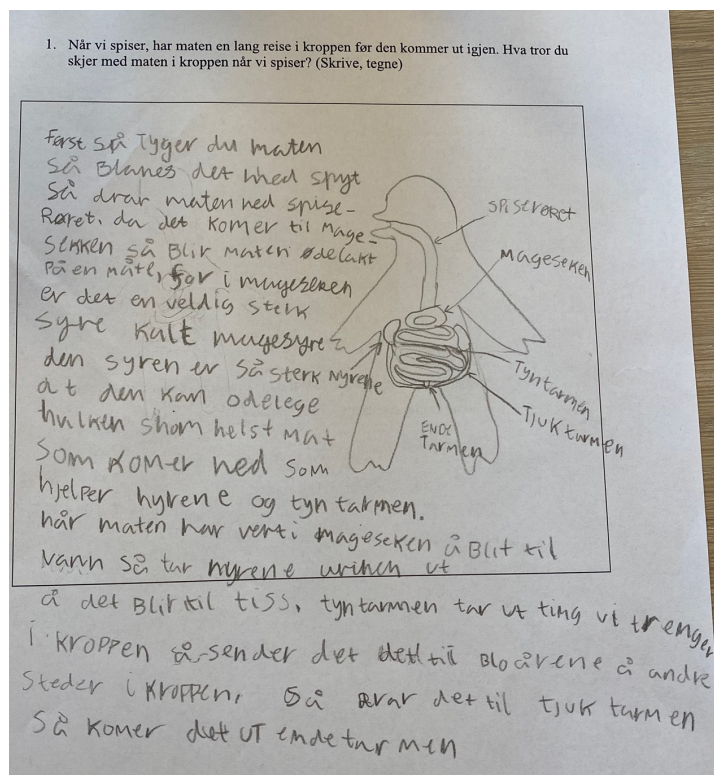 1. Når vi spiser, har maten en lang reise i kroppen før den kommer ut igjen. Hva tror du
skjer med maten i kroppen når vi spiser? (Skrive, tegne)
Først så Tyger du maten
så Blanes det med spyt
så drar maten ned spise-
Røret. da det komer til Mage-
sekken så Blir maten ødelakt
På en måte, for i mageseken
er det en veldig sterk
syre kalt magesyre
den syren er så sterk
at den kan odelege
hvilken shom helst mat
som komer ned som
hjelper nyrene og tyntarmen.
når maten har vert i mageseken å Blit til
vann så tar nyrene urinen ut
å det Blir til tiss, tyntarmen tar ut ting vi trenger
i kroppen så sender det til Bloårene å andre
steder i kroppen, så drar det til tjuktarmen
så komer det UT endetarmen
SPISERØRET
MAGESEKEN
Nyrene
Tyntarmen
TJUKtarmen
ENDE
TARMEN